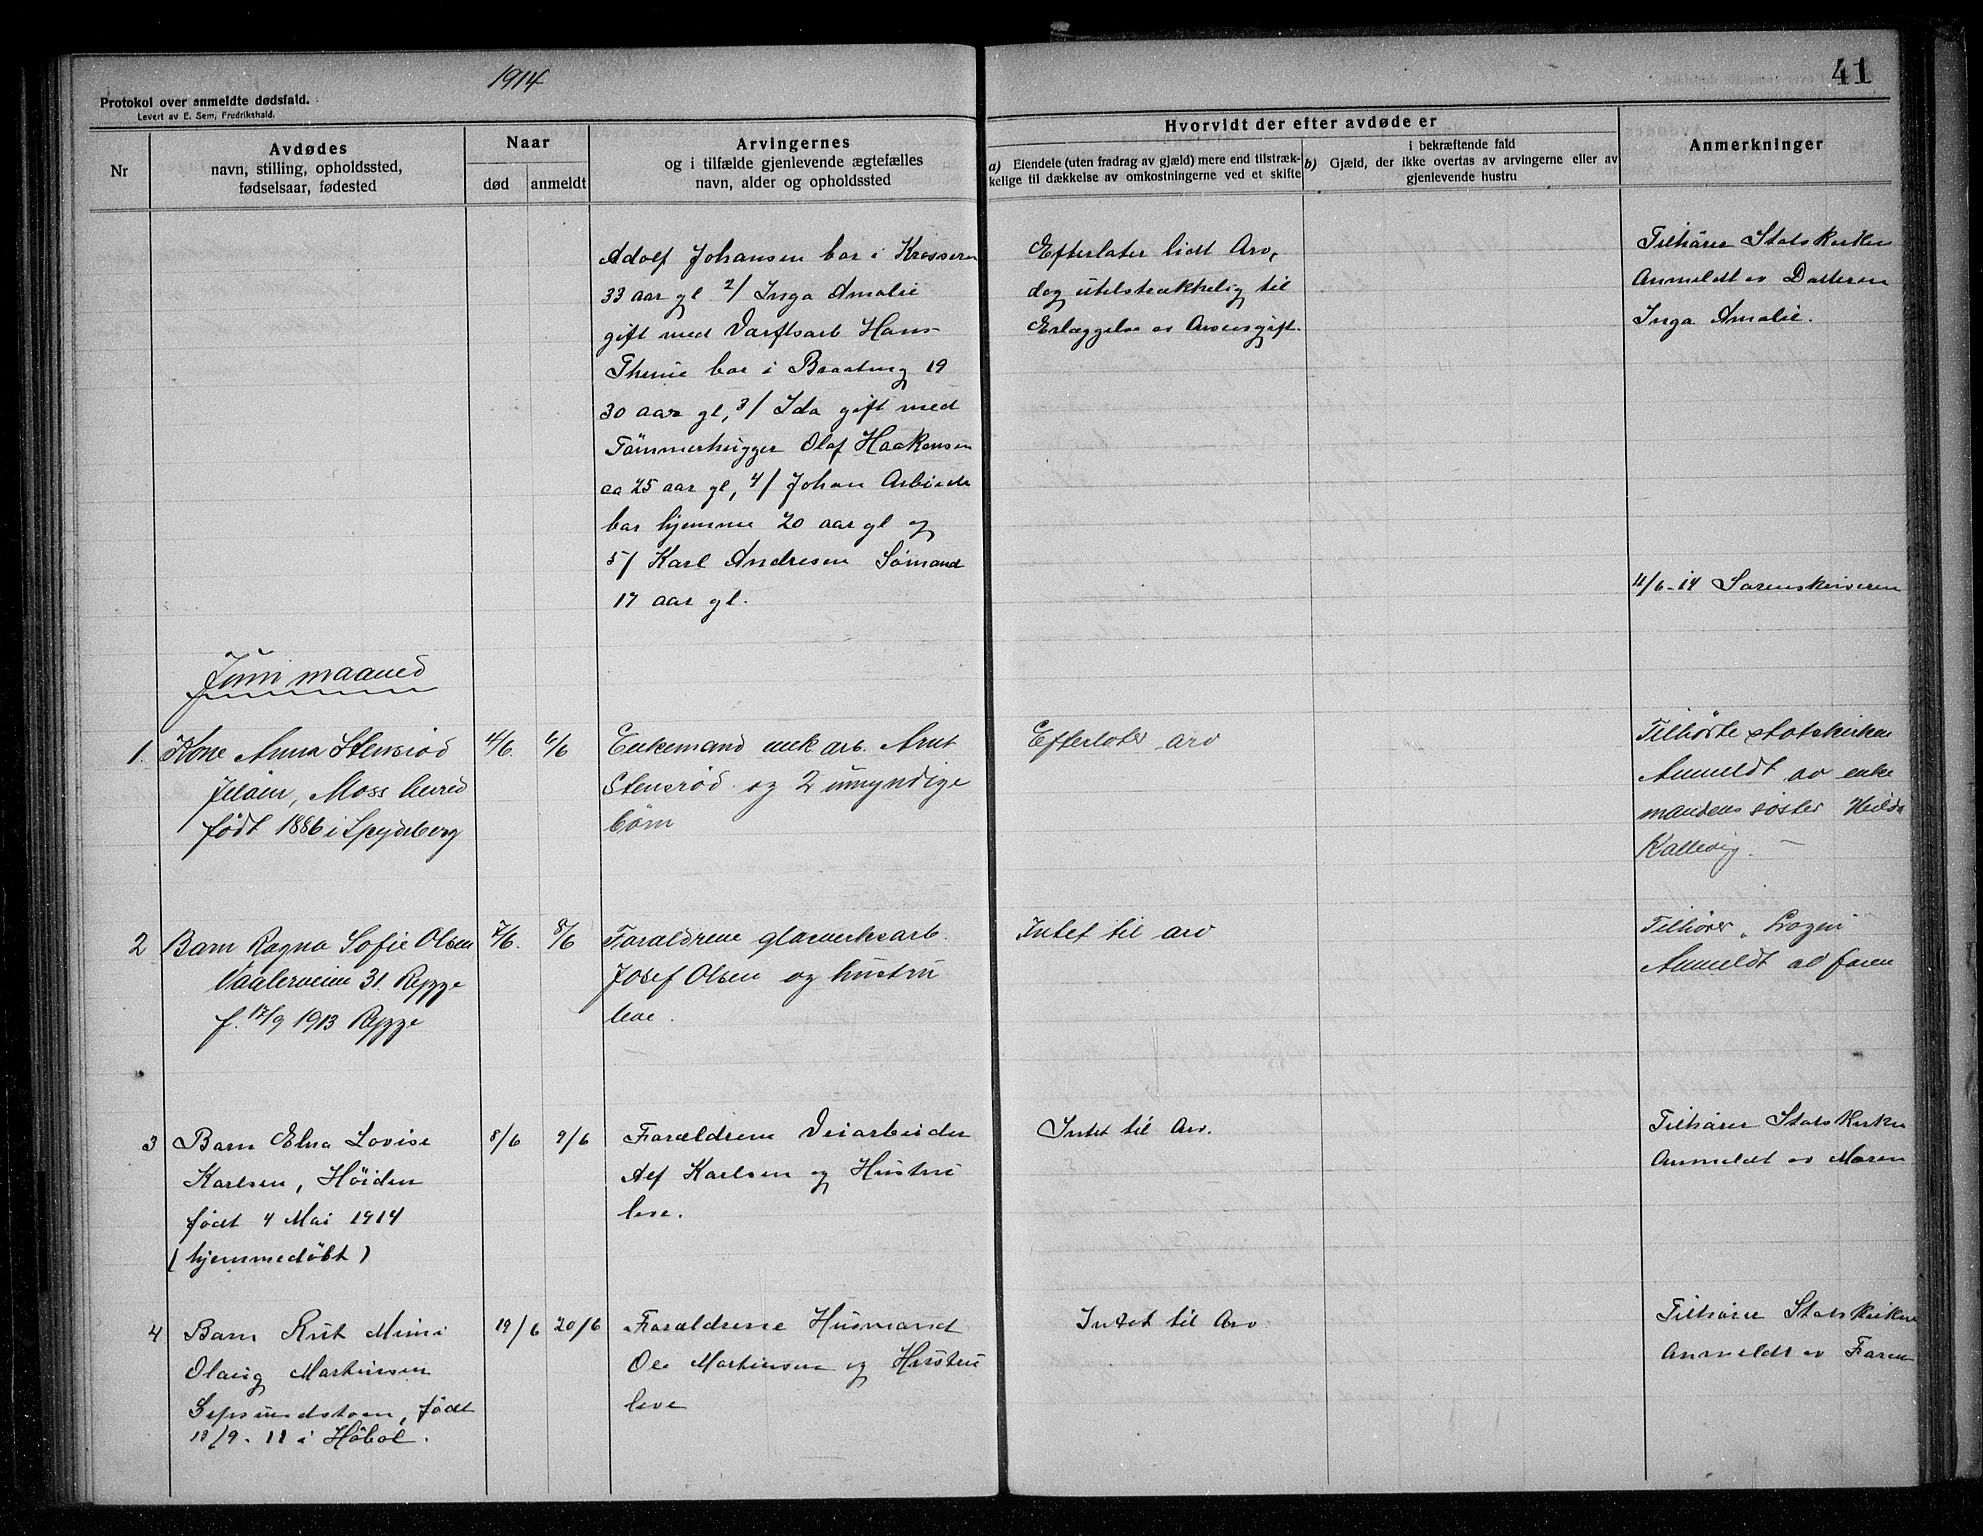 1914
41
Protokol over anmeldte dødsfald.
Levert av E. Sem, Fredrikshald.
Nr
Avdødes
navn, stilling, opholdssted,
fødselsaar, fødested
Naar
død
anmeldt
Arvingernes
og i tilfælde gjenlevende ægtefælles
navn, alder og opholdssted
Hvorvidt der efter avdøde er
a) Eiendele (uten fradrag av gjæld) mere end tilstræk-
kelige til dækkelse av omkostningerne ved et skifte
i bekræftende fald
b) Gjæld, der ikke overtas av arvingerne eller av
gjenlevende hustru
Anmerkninger
Adolf Johansen bor i Krosseren
33 aar gl 2/ Inga Amalie
gift med Varftsarb Hans
Thime bor i Braateng 19
30 aar gl, 3/ Ida gift med
Tömmerhugger Olaf Haakensen
ca 25 aar gl, 4/ Johan Arbeider
bor hjemme 20 aar gl og
5/ Karl Andresen Sömand
17 aar gl.
Efterlater lidt Arv,
dog utilstrækkelig til
Erlæggelse av Arveavgift.
Tilhörer Statskirken
Anmeldt av Datteren
Inga Amalie.
4/6-14 Sorenskriveren
Juni maaned
1. Kone Anna Stensröd
Jelöien, Moss herred
født 1886 i Spydeberg
4/6. 6/6
Enkemand mek arb. Arnt
Stensröd og 2 umyndige
börn
Efterlater arv
Tilhörte statskirken
Anmeldt av enke
mandens söster Hilda
Kallevig.
2 Barn Ragna Sofie Olsen
Vaalerveien 31. Rygge
f. 17/9 1913 Rygge
7/6. 8/6
Foraldrene glasverksarb.
Josef Olsen og hustru
leve.
Intet til arv
Tilhörer
Anmeldt av faren
3 Barn Elna Lovise
Karlsen, Höiden
födt 4 Mai 1914
(hjemmedöbt)
8/6 9/6
Forældrene Veiarbeider
Alf Karlsen og Hustru
leve.
Intet til Arv.
Tilhörer Statskirken
Anmeldt av Moren
4 Barn Rut Mimi
Olaug Martinsen
födt
13/9-11 i Höböl.
19/6 20/6
Forældrene Husmand
Ole Martinsen og Hustru
leve
Intet til Arv
Tilhörer Statskirken
Anmeldt av Faren